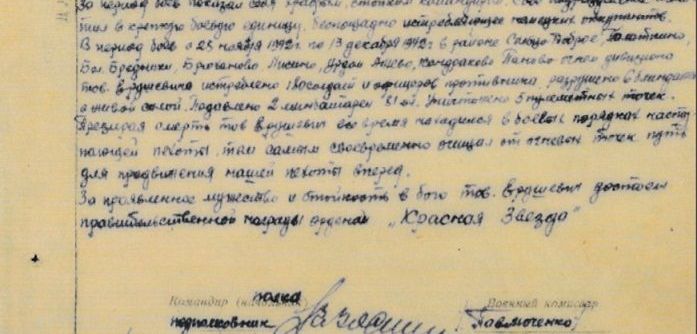 За период боев показал себя храбрым, стойким командиром. Свое подразделение
тил в крепкую боевую единицу, беспощадно истребляющее немецких оккупантов.
В период боев с 25 ноября 1942г. по 13 декабря 1942г. в районе
Бол. Бредники, Брюханово Лисино, Ардон Ануево, Кондраково Паново огнем дивизиона
тов. Ерушевича истреблено солдат и офицеров противника, разрушено 6 блиндажей
с живой силой. Подавлено 2 мин.батареи 81 мм. Уничтожено 5 пулеметных точек.
Презирая смерть тов Ерушевич все время находился в боевых порядках насту
пающей пехоты, тем самым своевременно очищал от огневых точек путь
для продвижения нашей пехоты вперед.
За проявленное мужество и стойкость в бою тов. Ерушевич достоен
правительственной награды орденом „Красная Звезда"
полка
Командир (начальник) Военный комиссар
подполковник (Павлюченко)